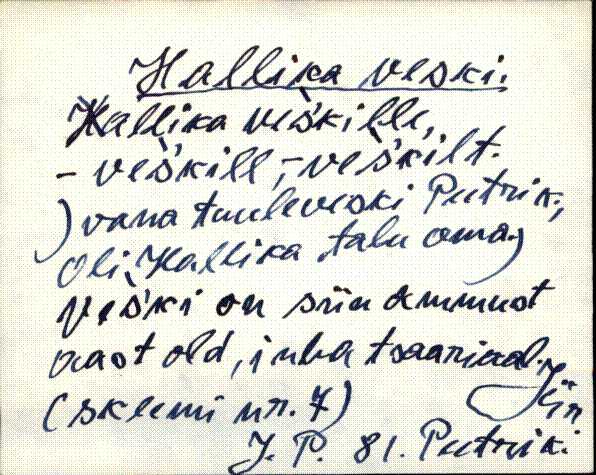 Hallika veski.
Hallika veśkille,
- veśkill, - veśkilt.
) vana tuuleveski Putrik,
oli Hallika talu oma)
Veśki on siin ammust
aast old, inba tsaariaal.
(skeemi nr. 7)
J. P. 81. Putrik.